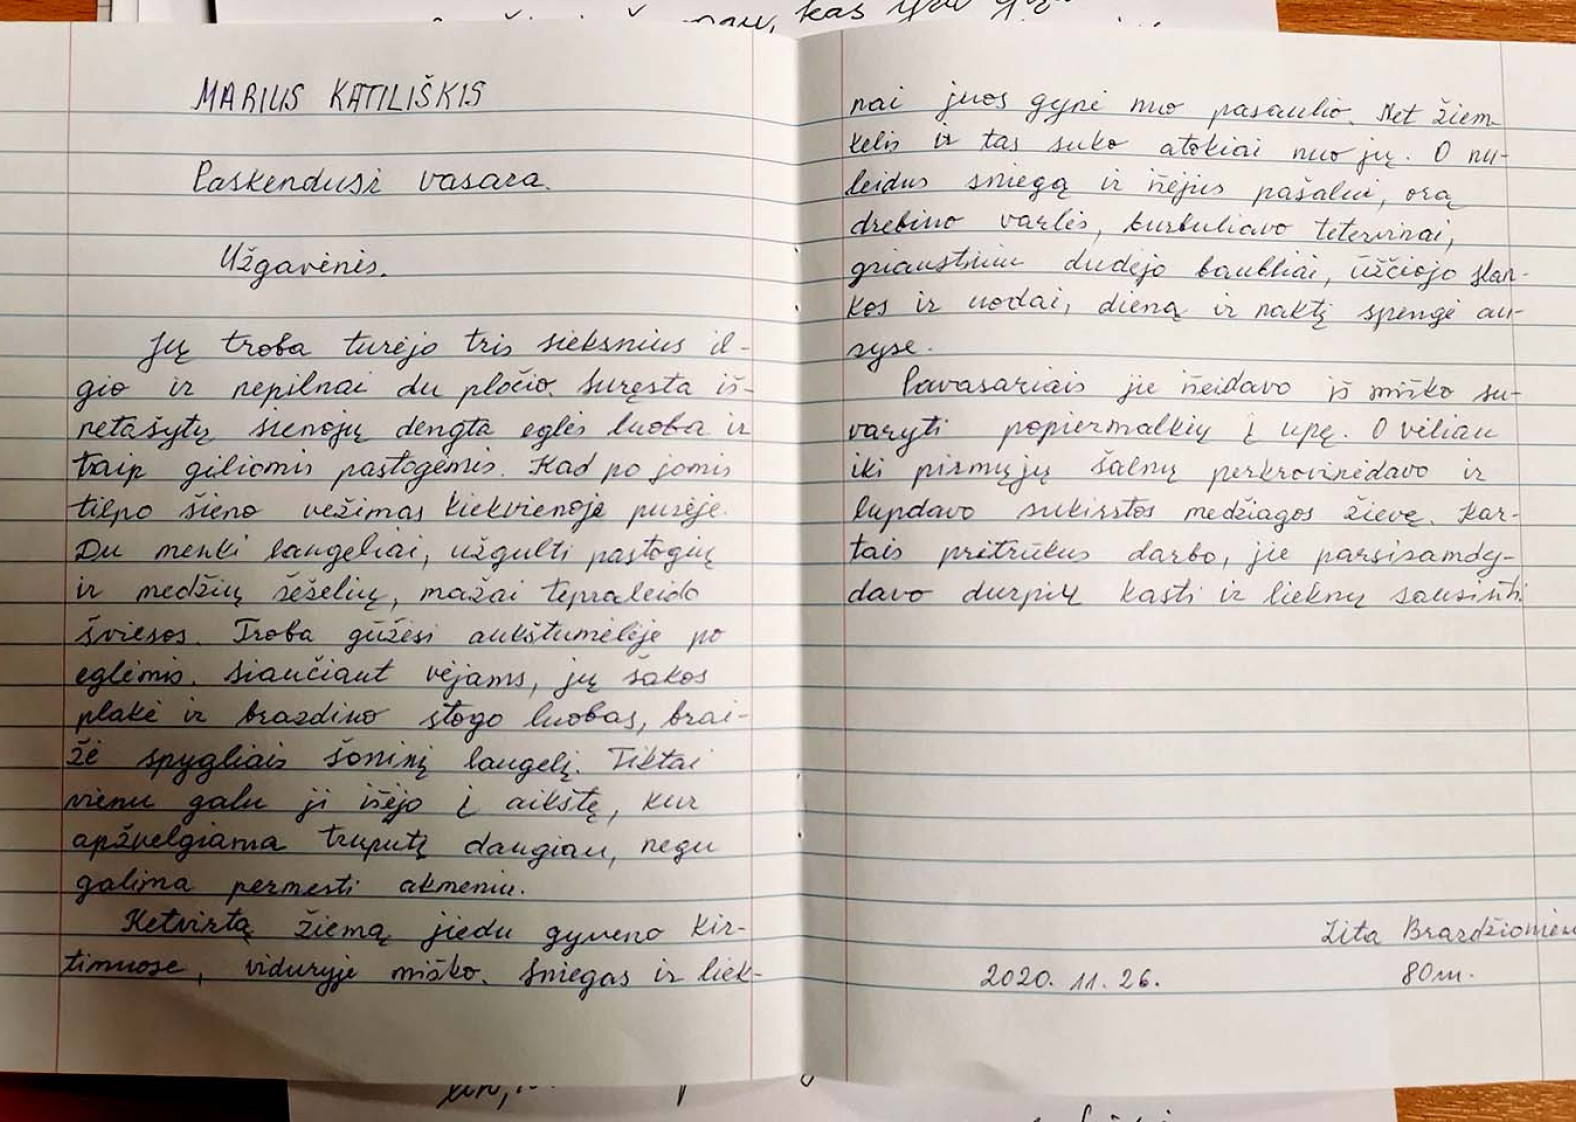 kas yra
MARIUS KATILIŠKIS
Paskendusi vasara.
Užgavėnės.
Jų troba turėjo tris sieksnius il-
gio ir nepilnai du pločio. Suręsta iš
netašytų sienojų dengta eglės luoba ir
taip giliomis pastogėmis. Kad po jomis
tilpo šieno vežimas kiekvienoje pusėje.
Du menki langeliai, užgulti pastogių
ir medžių šešėlių, mažai tepraleido
šviesos. Troba gūžėsi aukštumėlėje po
eglėmis. Siaučiant vėjams, jų šakos
plakė ir brazdino stogo luobas, brai-
žė spygliais šoninį langelį. Tiktai
vienu galu ji išėjo į aikštę, kur
apžvelgiama truputį daugiau, negu
galima permesti akmeniu.
Ketvirtą žiemą jiedu gyveno kir-
timuose, viduryje miško. Sniegas ir liek-
nai juos gynė nuo pasaulio. Net žiem-
kelis ir tas suko atokiai nuo jų. O nu-
leidus sniegą ir išėjus pašalui, orą
drebino varlės, burbuliavo tetervinai,
griaustiniu dudėjo baubliai, ūžčiojo slan-
kos ir uodai, dieną ir naktį spengė au-
syse.
Pavasariais jie išeidavo iš miško su-
varyti popiermalkių į upę. O vėliau
iki pirmųjų šalnų perkrovinėdavo ir
lupdavo sukirstos medžiagos žievę. Kar-
tais pritrūkus darbo, jie parsisamdy-
davo durpių kasti ir lieknų sausinti.
Zita Brazdžionien
2020. 11. 26.
80m.